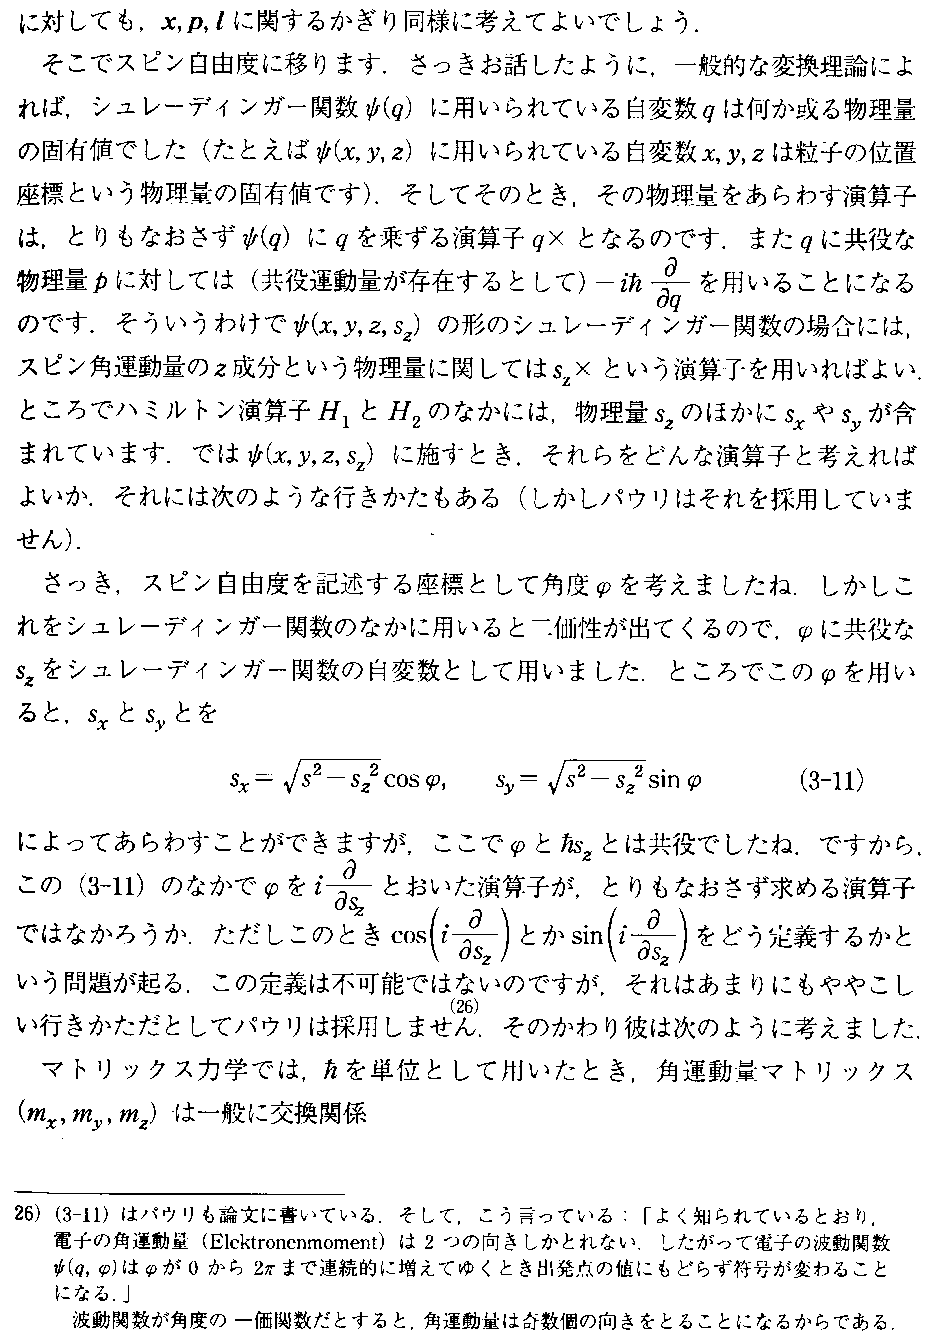 に対しても，x, p, l に関するかぎり同様に考えてよいでしょう．
そこでスピン自由度に移ります．さっきお話したように，一般的な変換理論によ
れば，シュレーディンガー関数ψ(q) に用いられている自変数 q は何か或る物理量
の固有値でした（たとえばψ(x, y, z) に用いられている自変数 x, y, z は粒子の位置
座標という物理量の固有値です）．そしてそのとき，その物理量をあらわす演算子
は，とりもなおさずψ(q) に q を乗ずる演算子 q× となるのです．また q に共役な
物理量 p に対しては（共役運動量が存在するとして）−iħ ∂/∂q を用いることになる
のです．そういうわけでψ(x, y, z, s_z) の形のシュレーディンガー関数の場合には，
スピン角運動量の z 成分という物理量に関しては s_z× という演算子を用いればよい．
ところでハミルトン演算子 H₁ と H₂ のなかには，物理量 s_z のほかに s_x や s_y が含
まれています．ではψ(x, y, z, s_z) に施すとき，それらをどんな演算子と考えれば
よいか．それには次のような行きかたもある（しかしパウリはそれを採用していま
せん）．
さっき，スピン自由度を記述する座標として角度φを考えましたね．しかしこ
れをシュレーディンガー関数のなかに用いると二価性が出てくるので，φに共役な
s_z をシュレーディンガー関数の自変数として用いました．ところでこのφを用い
ると，s_x と s_y とを
s_x = √(s² − s_z²) cos φ,　s_y = √(s² − s_z²) sin φ　(3-11)
によってあらわすことができますが，ここでφと ħs_z とは共役でしたね．ですから，
この（3-11）のなかでφを i ∂/∂s_z とおいた演算子が，とりもなおさず求める演算子
ではなかろうか．ただしこのとき cos(i ∂/∂s_z) とか sin(i ∂/∂s_z) をどう定義するかと
いう問題が起る．この定義は不可能ではないのですが，それはあまりにもややこし
い行きかただとしてパウリは採用しません(26)．そのかわり彼は次のように考えました．
マトリックス力学では，ħ を単位として用いたとき，角運動量マトリックス
(m_x, m_y, m_z) は一般に交換関係
26) (3-11) はパウリも論文に書いている．そして，こう言っている：「よく知られているとおり，
電子の角運動量（Elektronenmoment）は 2 つの向きしかとれない．したがって電子の波動関数
ψ(q, φ)はφが 0 から 2π まで連続的に増えてゆくとき出発点の値にもどらず符号が変わること
になる．」
波動関数が角度の一価関数だとすると，角運動量は奇数個の向きをとることになるからである．